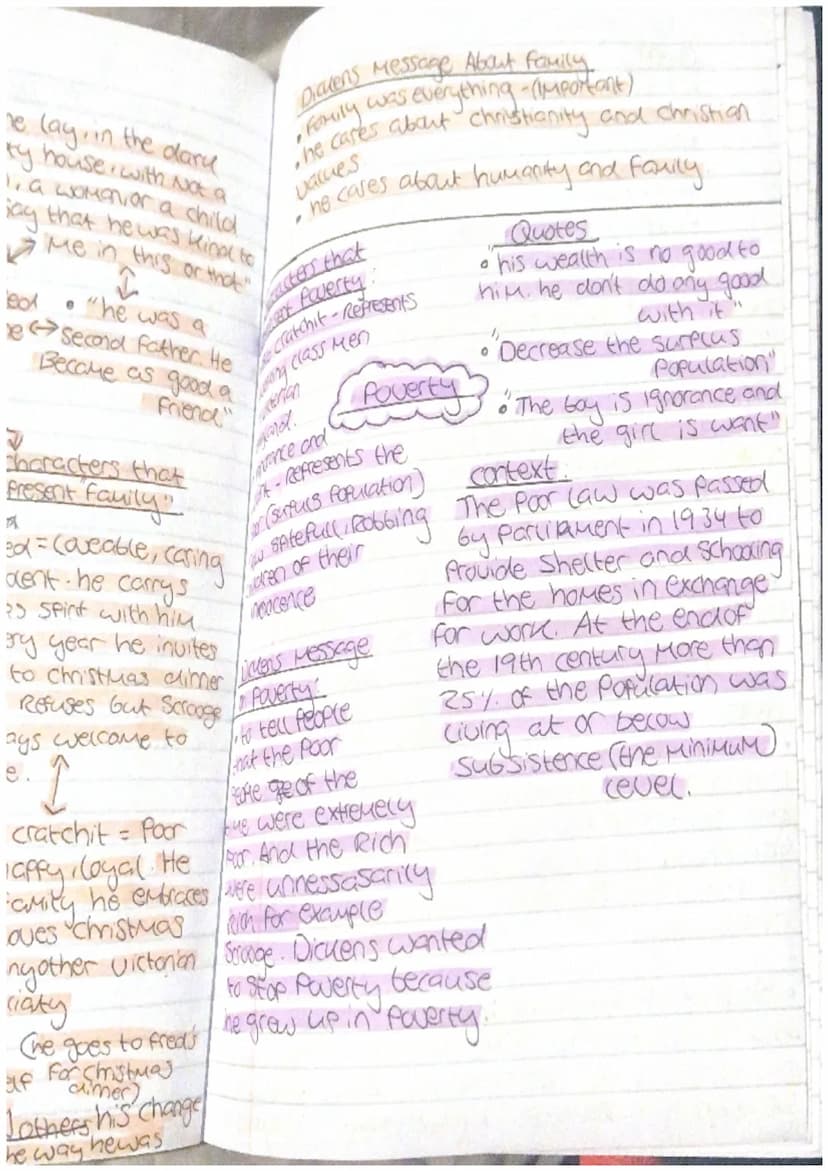 e lay, in the dark
ty house, with not a
, a woman, or a child
say that he was kind to
me in this or that"
• "he was a
second father. He
Became as good a
friend"
characters that
present "family"
ed = loveable, caring
dent. he carrys
spirit with him
ery year he invites
to christmas dinner
Refuses but Scrooge
ays welcome to
e.
cratchit = Poor
happy, loyal. He
family he embraces
oves "christmas
nyother victorian
ciaty
(he goes to fred's
elf for christmas
dinner)
others his change
he way he was
Dickens Message About Family
• Family was everything - (important)
• he cares about christianity and christian
values
• he cares about humanity and family
racters that
esent Poverty:
cratchit - Represents
king class Men
torian
land.
orance and
nt - Represents the
or (Surplus Population)
children of their
innocence
Dickens Message
n Poverty:
• to tell people
that the Poor
People of the
time were extremely
Poor. And the Rich
were unnessasarily
Rich for example
Scrooge. Dickens wanted
to stop Poverty because
he grew up in Poverty.
Poverty
Quotes
• "his wealth is no good to
him. he don't do any good
with it"
• "Decrease the surplus
Population"
• "The boy is Ignorance and
the girl is want"
context:
The Poor Law was passed
by Parliament in 1934 to
Provide Shelter and Schooling
for the homes in exchange
for work. At the end of
the 19th century more than
25% of the Population was
living at or below
Subsistence (the Minimum)
level.